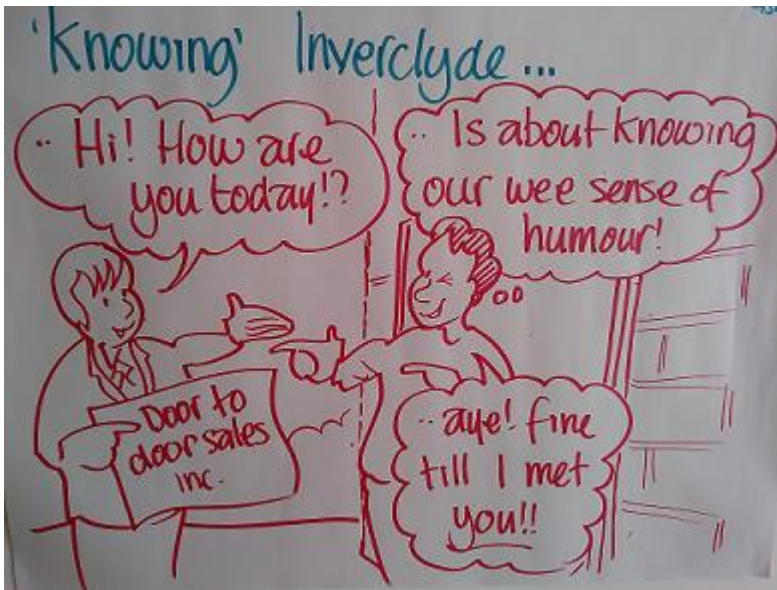 'Knowing' Inverclyde...
.. Hi! How are
you today!?
.. Is about knowing
our wee sense of
humour!
Door to
door sales
inc.
.. aye! fine
till I met
you!!